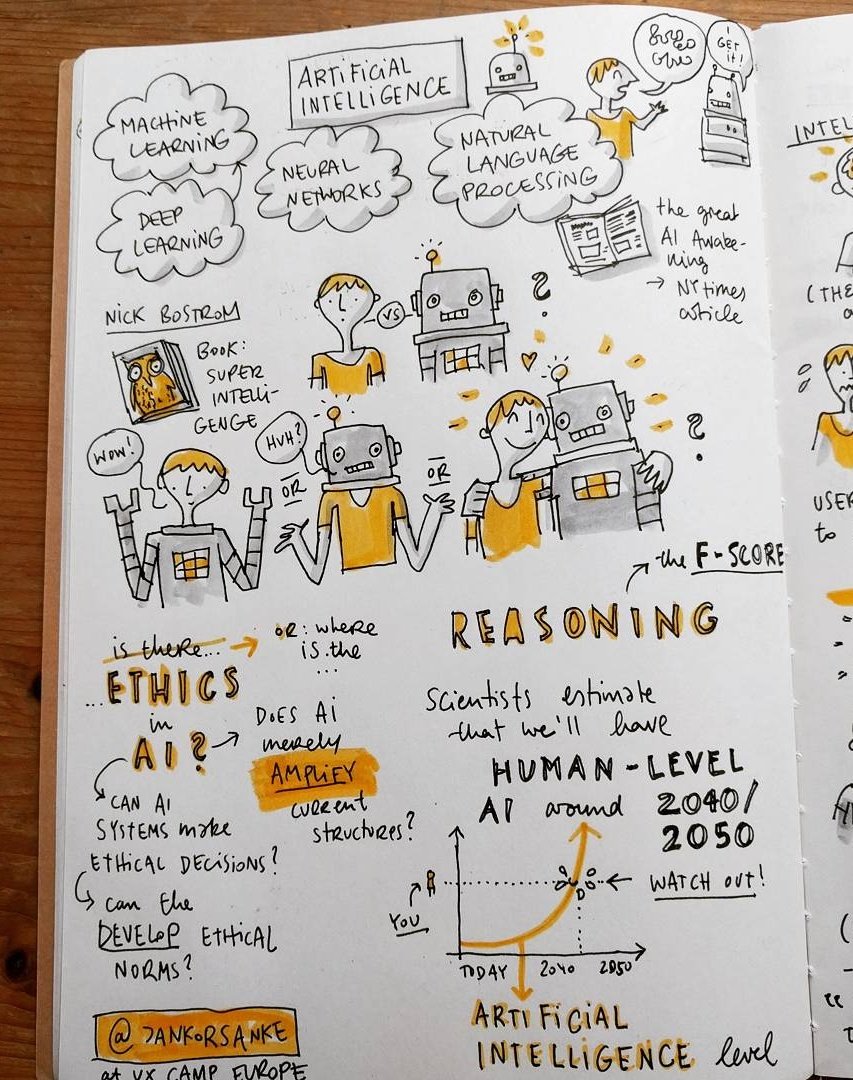 ARTIFICIAL
INTELLIGENCE
I
GET
it!
MACHINE
LEARNING
DEEP
LEARNING
NEURAL
NETWORKS
NATURAL
LANGUAGE
PROCESSING
the great
AI Awake-
ning
→ NY times
article
NICK BOSTROM
BOOK:
SUPER
INTELLI-
GENGE
VS
?
WOW!
OR
HUH?
OR
?
the F-SCORE
REASONING
is there... → OR: where
is the
...
...ETHICS
in
AI?
DOES AI
merely
AMPLIFY
current
structures?
CAN AI
SYSTEMS make
ETHICAL DECISIONS?
can the
DEVELOP ETHICAL
NORMS?
Scientists estimate
that we'll have
HUMAN-LEVEL
AI around 2040/
2050
← WATCH OUT!
YOU
TODAY 2040 2050
ARTIFICIAL
INTELLIGENCE level
@JANKORSANKE
at UX CAMP EUROPE
INTEL
(THE
USER
to